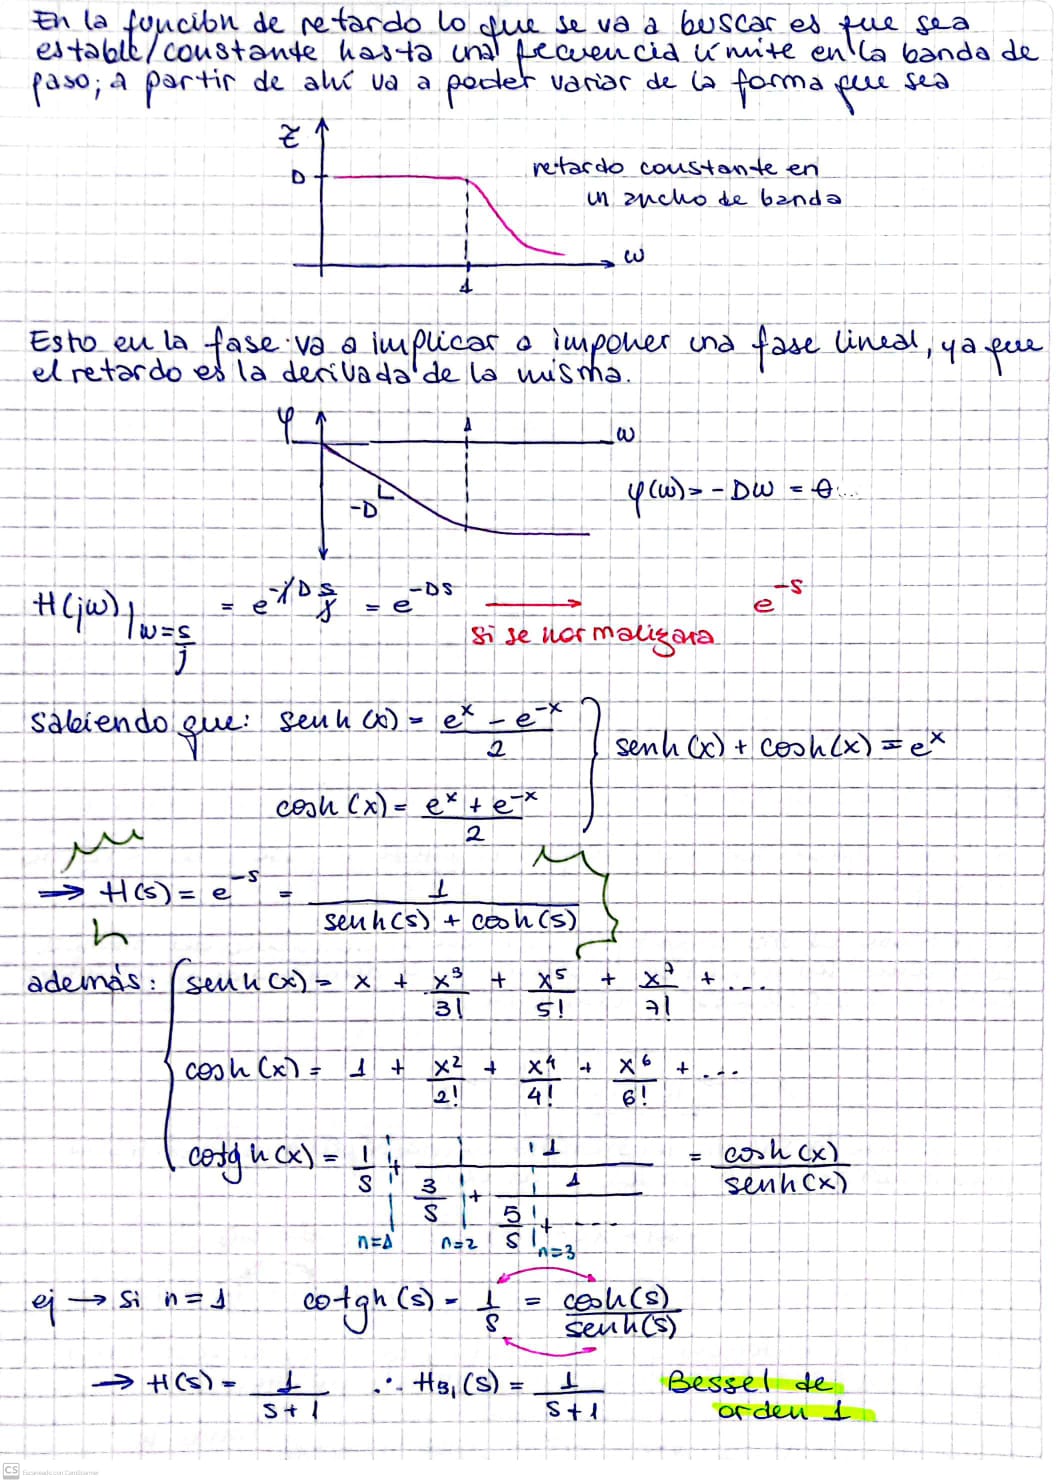 En la función de retardo lo que se va a buscar es que sea
estable/constante hasta una frecuencia límite en la banda de
paso; a partir de ahí va a poder variar de la forma que sea
τ
D
retardo constante en
un ancho de banda
ω
1
Esto en la fase va a implicar o imponer una fase lineal, ya que
el retardo es la derivada de la misma.
φ
1
ω
-D
φ(ω) = -Dω = θ...
H(jω)|ω=s/j = e^(-jD s/j) = e^(-Ds) → e^(-s)
si se normalizara
Sabiendo que: senh(x) = (e^x - e^(-x))/2
senh(x) + cosh(x) = e^x
cosh(x) = (e^x + e^(-x))/2
⇒ H(s) = e^(-s) = 1/(senh(s) + cosh(s))
además: senh(x) = x + x^3/3! + x^5/5! + x^7/7! + ...
cosh(x) = 1 + x^2/2! + x^4/4! + x^6/6! + ...
cotgh(x) = 1/s + 1/(3/s + 1/(5/s + ...)) = cosh(x)/senh(x)
n=1 n=2 n=3
ej → si n=1 cotgh(s) = 1/s = cosh(s)/senh(s)
→ H(s) = 1/(s+1) ∴ HB1(s) = 1/(s+1) Bessel de
orden 1
CS Escaneado con CamScanner